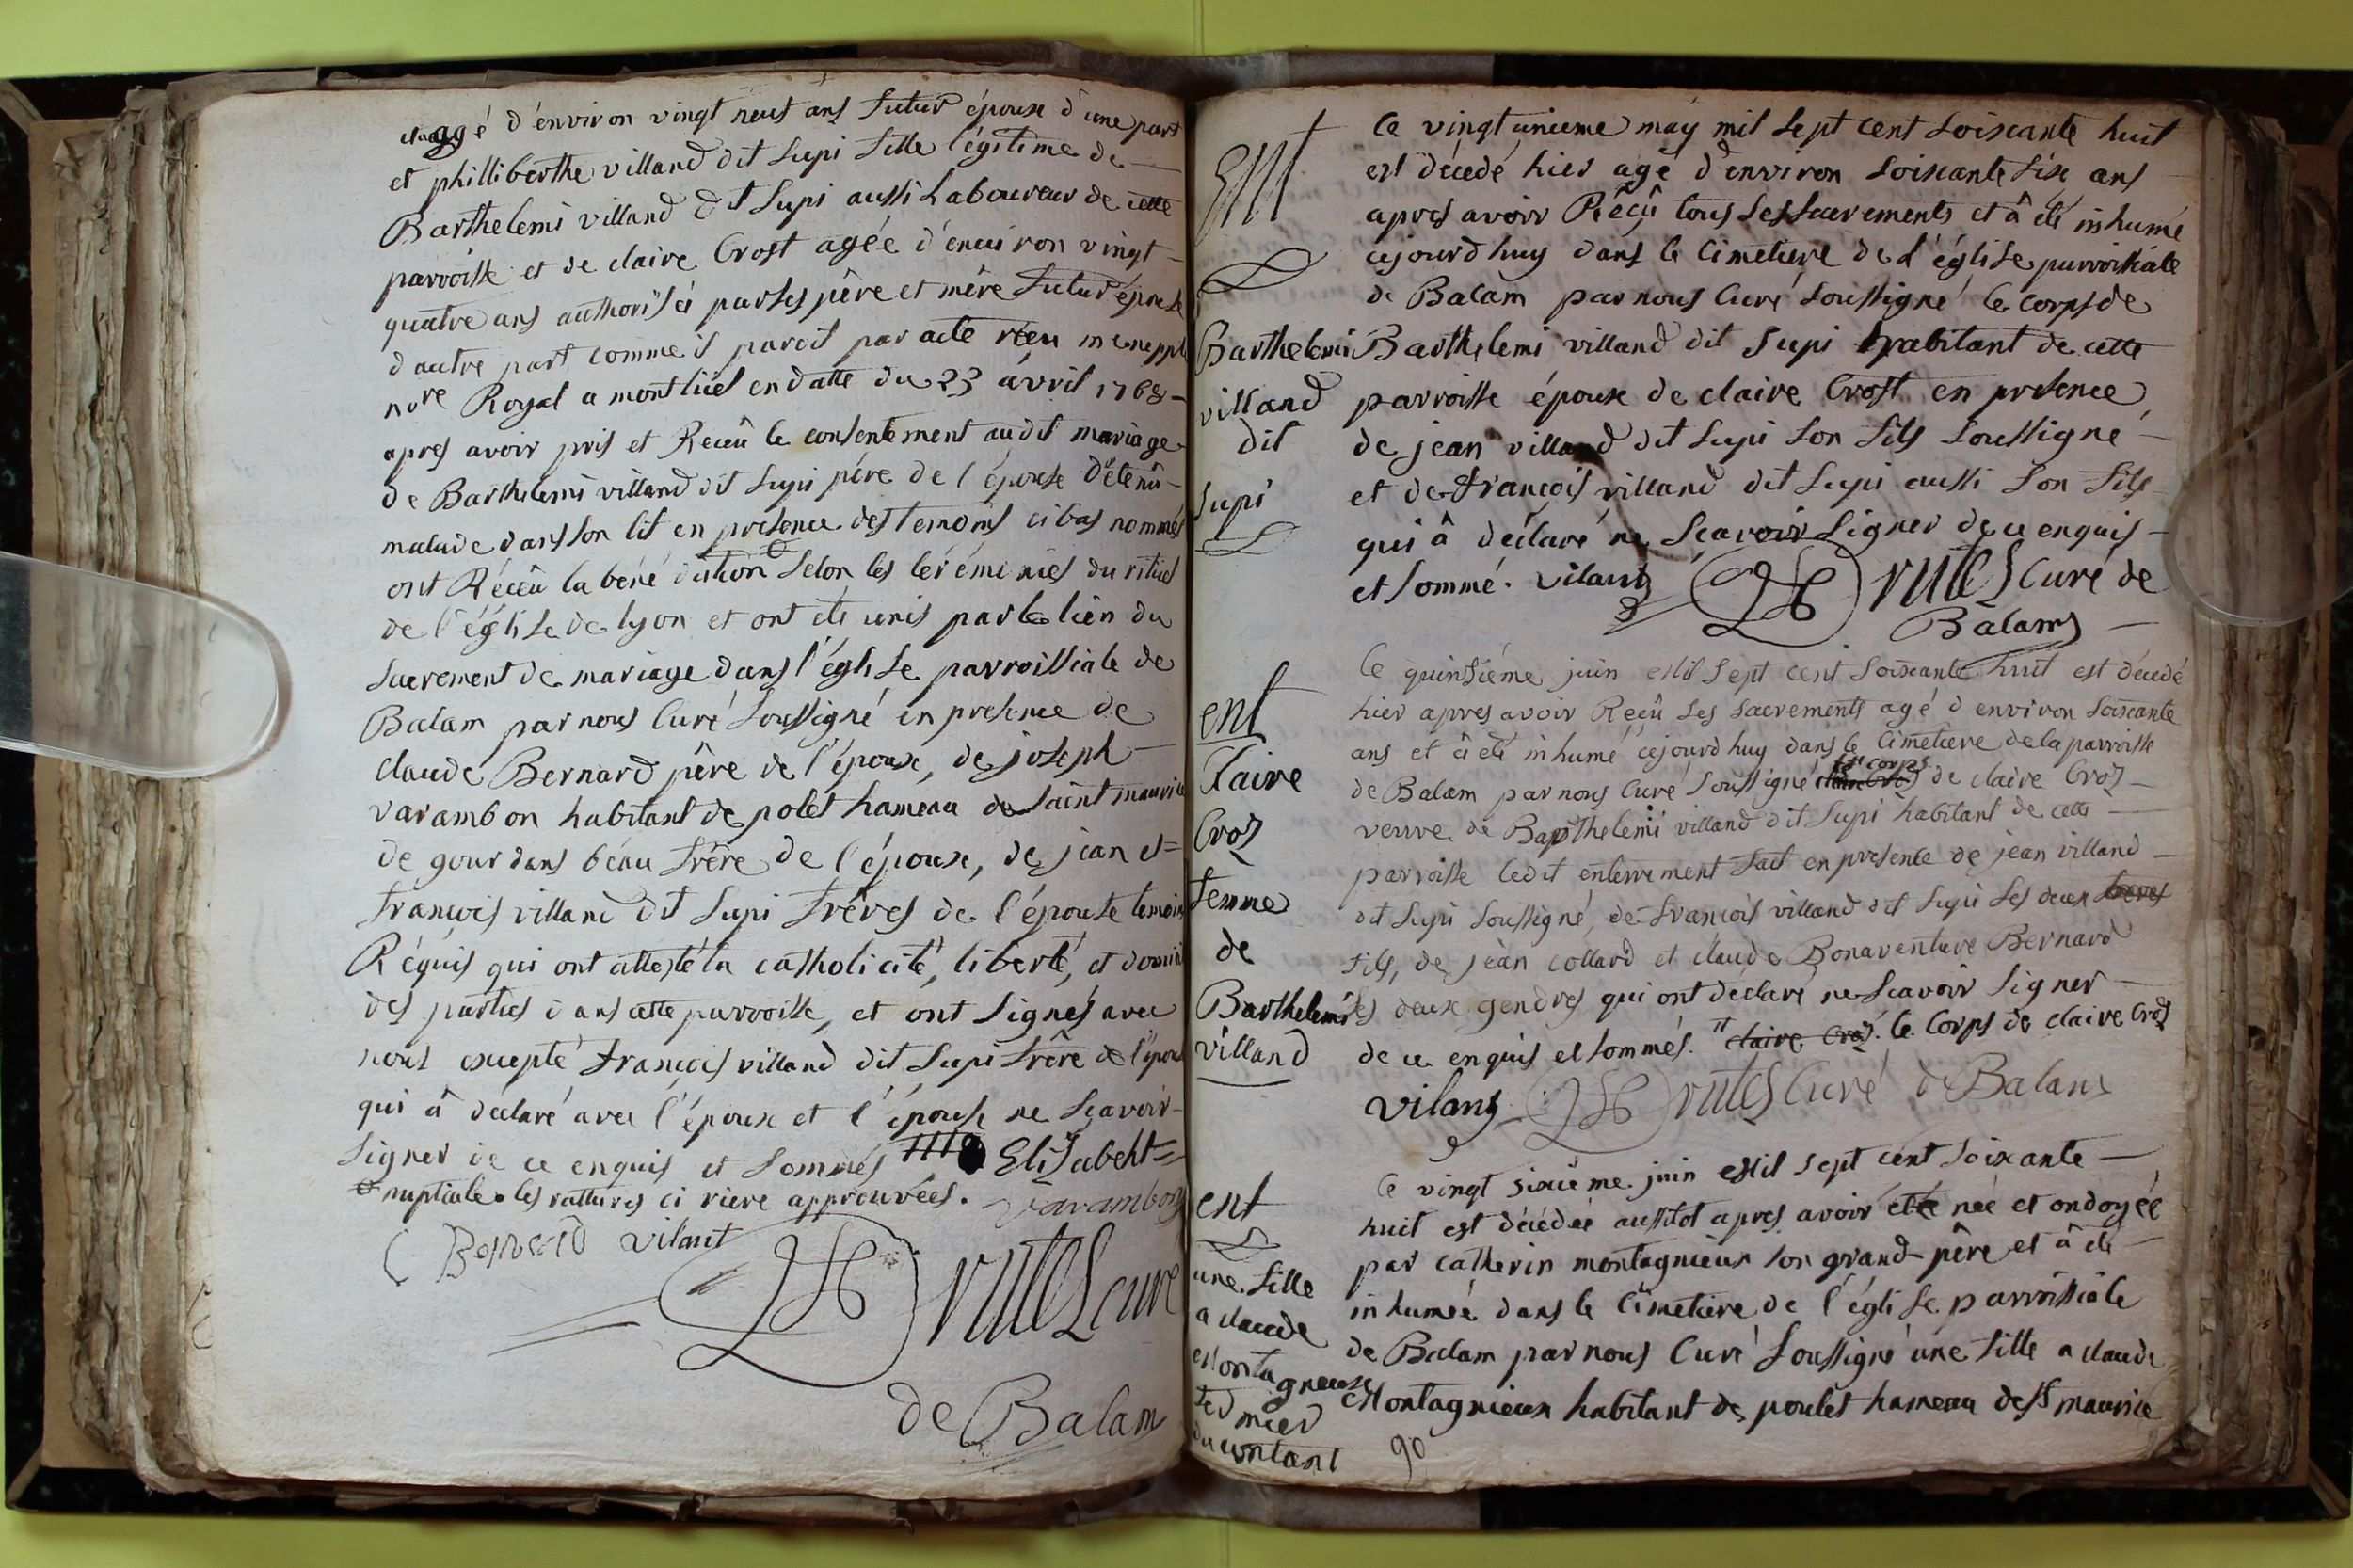 agé d'environ vingt neuf ans futur époux d'une part
et philliberthe villand dit Supi fille légitime de
Barthelemi villand dit Supi aussi Laboureur de cette
parroisse et de claire Crost agée d'environ vingt
quatre ans authorisée par ses père et mère future épouse
d'autre part comme il paroit par acte reçu
nore Royal a montluel en datte du 23 avril 1768
apres avoir pris et Receû le consentement audit mariage
de Barthelemi villand dit Supi père de l'épouse détenû
malade dans son lit en présence des temoins ci bas nommés
ont Réceû la béné diction selon les cérémonies du rituel
de l'église de lyon et ont été unis par le lien du
sacrement de mariage dans l'église parroissiale de
Balam par nous Curé soussigné en presence de
claude Bernard père de l'époux, de joseph
varambon habitant de polet hameau de saint maurice
de gourdans beau frère de l'époux, de jean et
françois villand dit Supi frères de l'épouse temoins
Réquis qui ont attesté la catholicité, liberté, et domicile
des parties dans cette parroisse, et ont signés avec
nous excepté françois villand dit Supi frère de l'épouse
qui â déclaré avec l'époux et l'épouse ne sçavoir
signer de ce enquis et sommés Elisabeht
nuptiale les rattures ci riere approuvées. varambon
C Bernard vilant
Rutes curé
de Balam
Ent
Barthelemi
villand
dit
Supi
Ce vingt unieme may mil sept cent soixante huit
est décedé hier agé d'environ soixante six ans
apres avoir Réçû tous ses sacrements et â été inhumé
cejourdhuy dans le cimetiere de l'église parroissiale
de Balam par nous Curé soussigné le corps de
Barthelemi villand dit Supi habitant de cette
parroisse époux de claire Crost en presence
de jean villand dit Supi son fils soussigné
et de françois villand dit Supi aussi son fils
qui â déclaré ne sçavoir signer de ce enquis
et sommé. vilant Rutes curé de
Balam
ent
Claire
Croz
femme
de
Barthelemi
villand
Ce quinsiéme juin Mil sept cent soixante huit est décedé
hier apres avoir Reçû ses sacrements agé d'environ soixante
ans et â été inhumé cejourdhuy dans le cimetiere de la parroisse
de Balam par nous Curé soussigné le corps de claire Croz
veuve de Barthelemi villand dit Supi habitant de cette
parroisse ledit enterrement fait en presence de jean villand
dit Supi soussigné, de françois villand dit Supi ses deux freres
fils, de jean collard et claude Bonaventure Bernard
ses deux gendres qui ont déclaré ne sçavoir signer
de ce enquis et sommés. claire Croz. le Corps de claire Croz
vilant Rutes Curé de Balam
ent
une fille
a claude
Montagneux
fermier
du contant
Ce vingt sixième juin Mil sept cent soixante
huit est décédée aussitot apres avoir eté née et ondoyée
par catherin montagnieux son grand-père et â été
inhumée dans le cimetiere de l'église parroissiale
de Balam par nous Curé soussigné une fille a claude
Montagnieux habitant de poulet hameau de St maurice
90